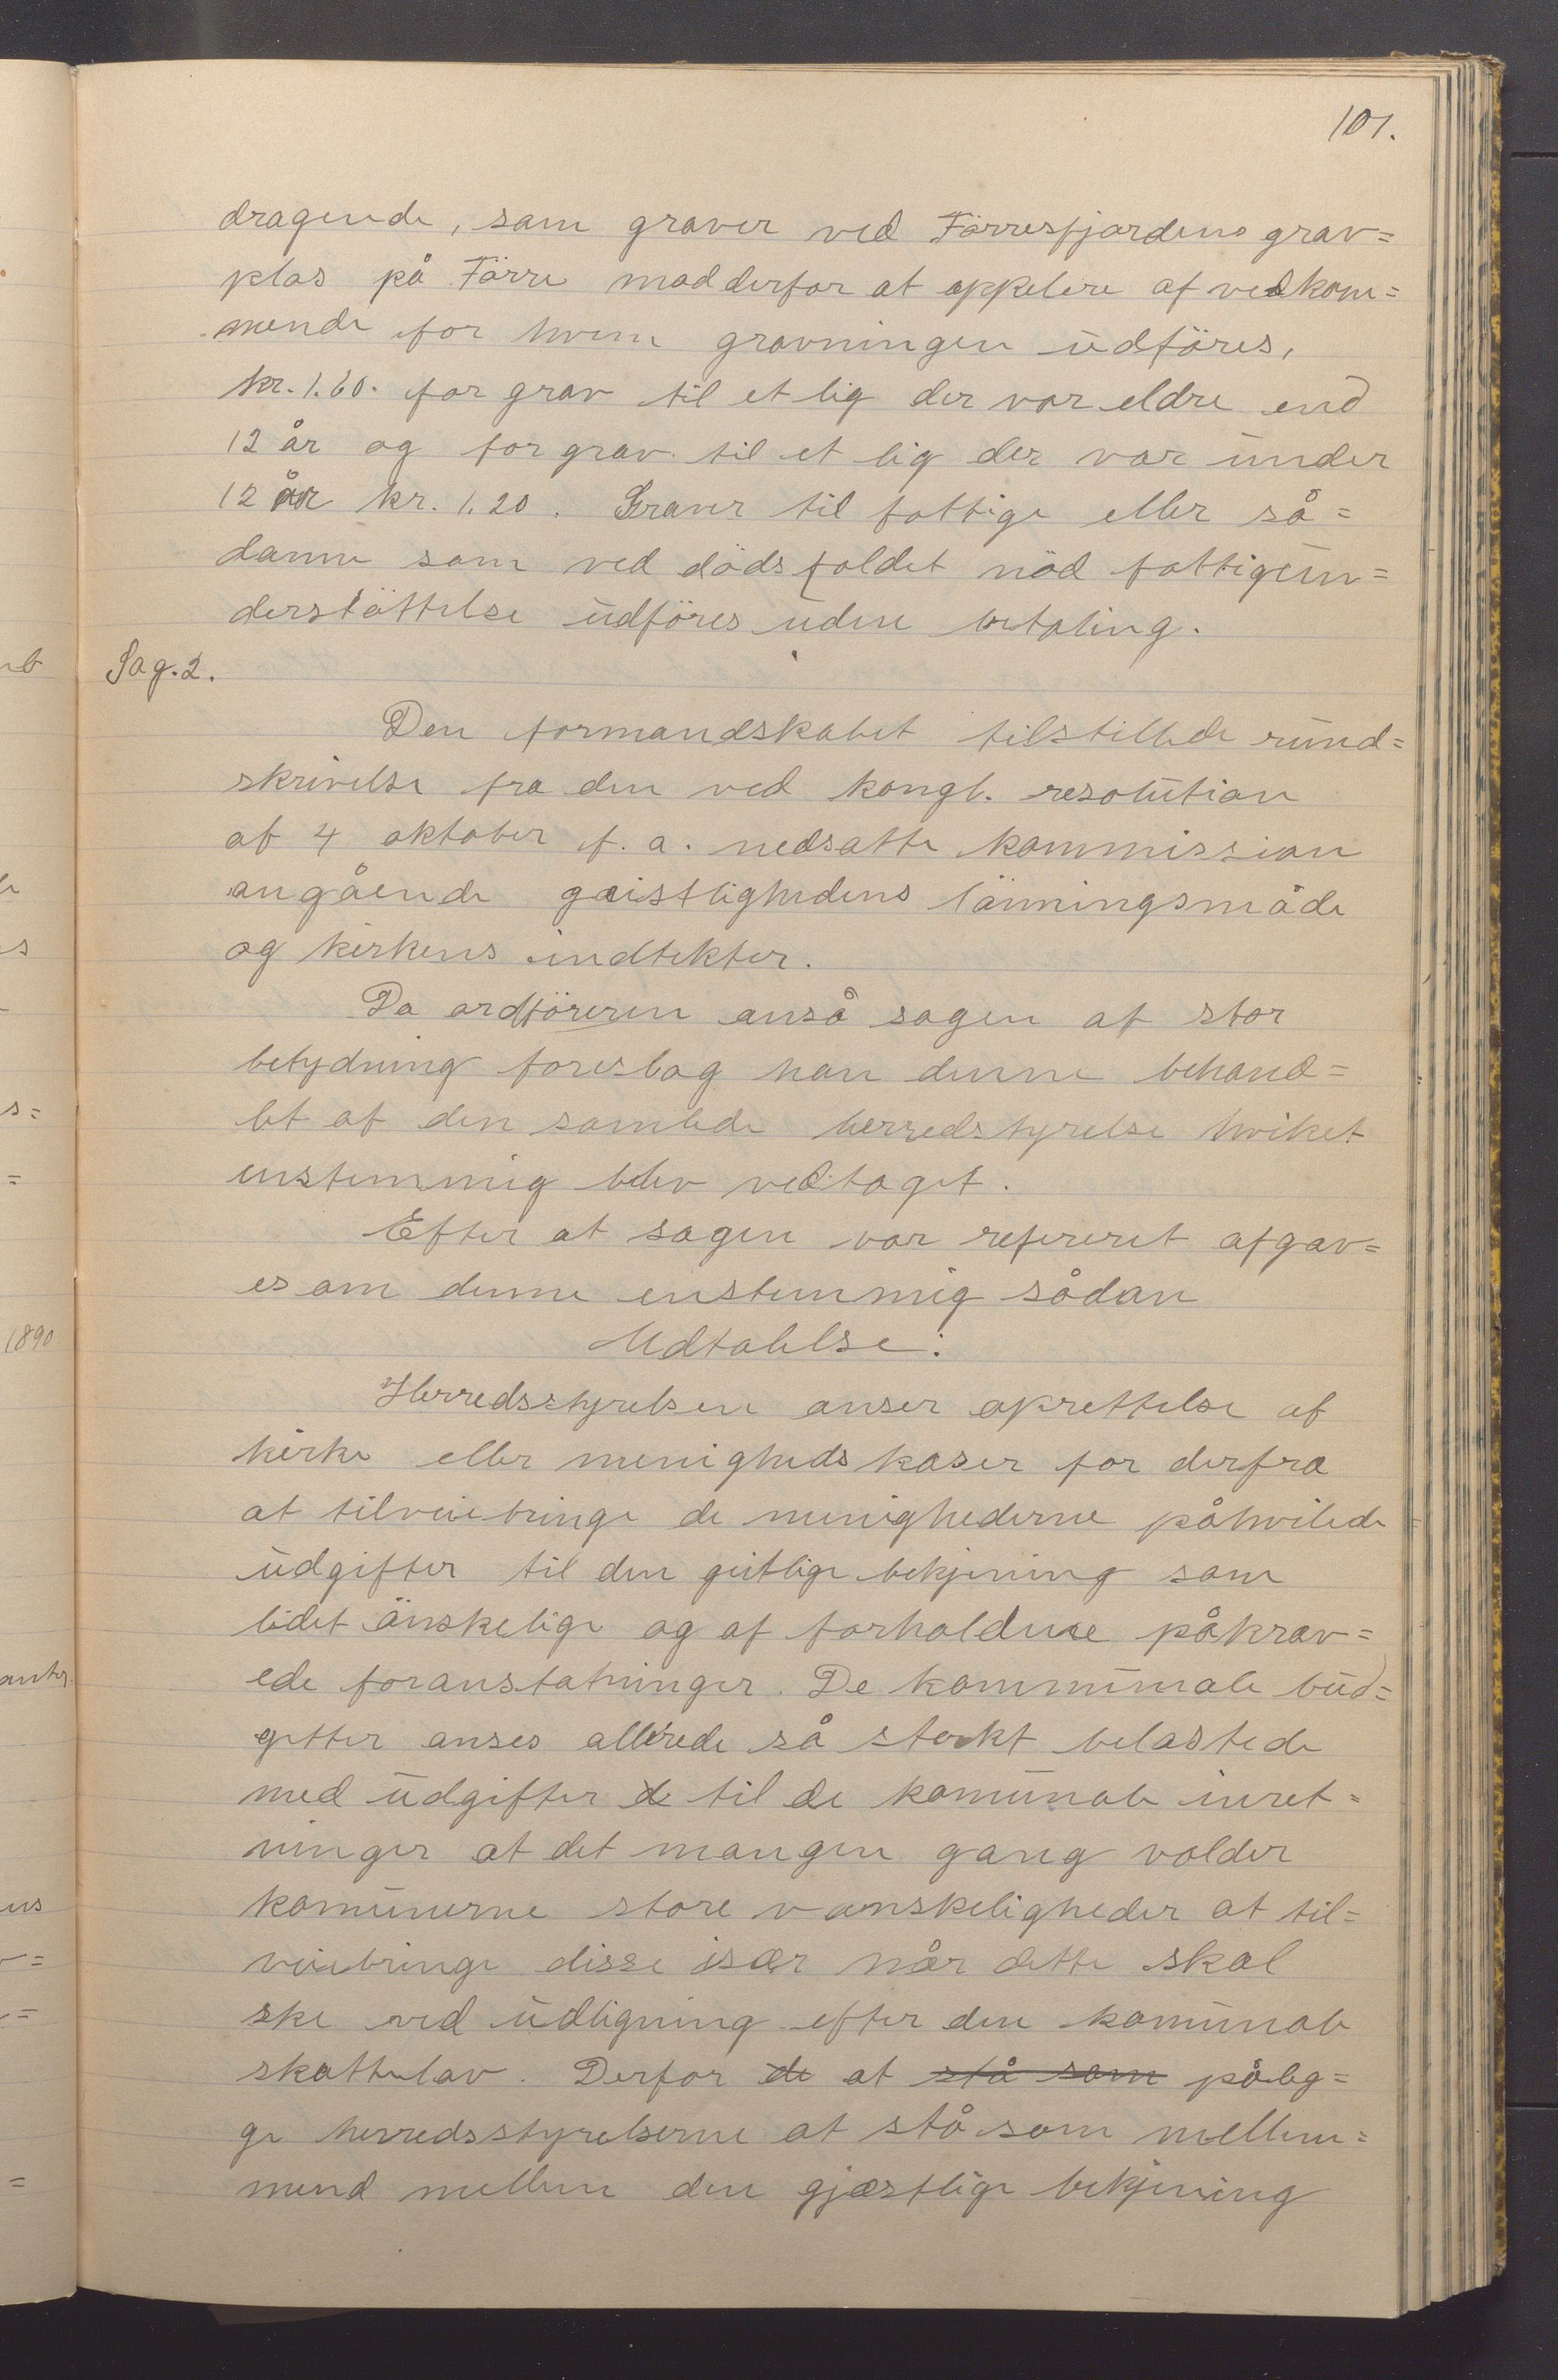 101.
dragende, som graver ved Förresfjordens grav=
plas på Förre mod derfor at oppebere af vedkom=
mende for hvem gravningen udföres,
kr. 1.60. for grav til et lig der var eldre end
12 år og for grav til et lig der var under
12 år kr. 1.20. Graver til fattige eller så=
danne som ved dödsfaldet nöd fattigun=
derstöttelse udföres uden betaling.
Sag. 2.
Den formandskabet tilstillede rund=
skrivelse fra den ved kongl. resolution
af 4 oktober f. a. nedsatte kommission
angående geistlighedens lönningsmåde
og kirkens indtekter.
Da ordföreren anså sagen af stor
betydning foreslog han denne behand=
let af den samlede herredstyrelse hvilket
enstemmig blev vedtaget.
Efter at sagen var refereret afgav=
es om denne enstemmig sådan
Udtalelse:
Herredsstyrelsen anser oprettelse af
kirke eller menighedskaser for derfra
at tilveiebringe de menighederne påhvilede
udgifter til den geitlige betjening som
lidet önskelige og af forholdene påkrav=
ede foranstatninger. De kommunale bud=
getter anses allerede så sterkt belastede
med udgifter de til de komunale inret=
ninger at det mangen gang volder
komunerne store vanskeligheder at til=
veiebringe disse især når dette skal
ske ved udligning efter den komunale
skattelov. Derfor de at stå som påleg=
ge herredsstyrelserne at stå som mellem=
mend mellem den gjæstlige betjening